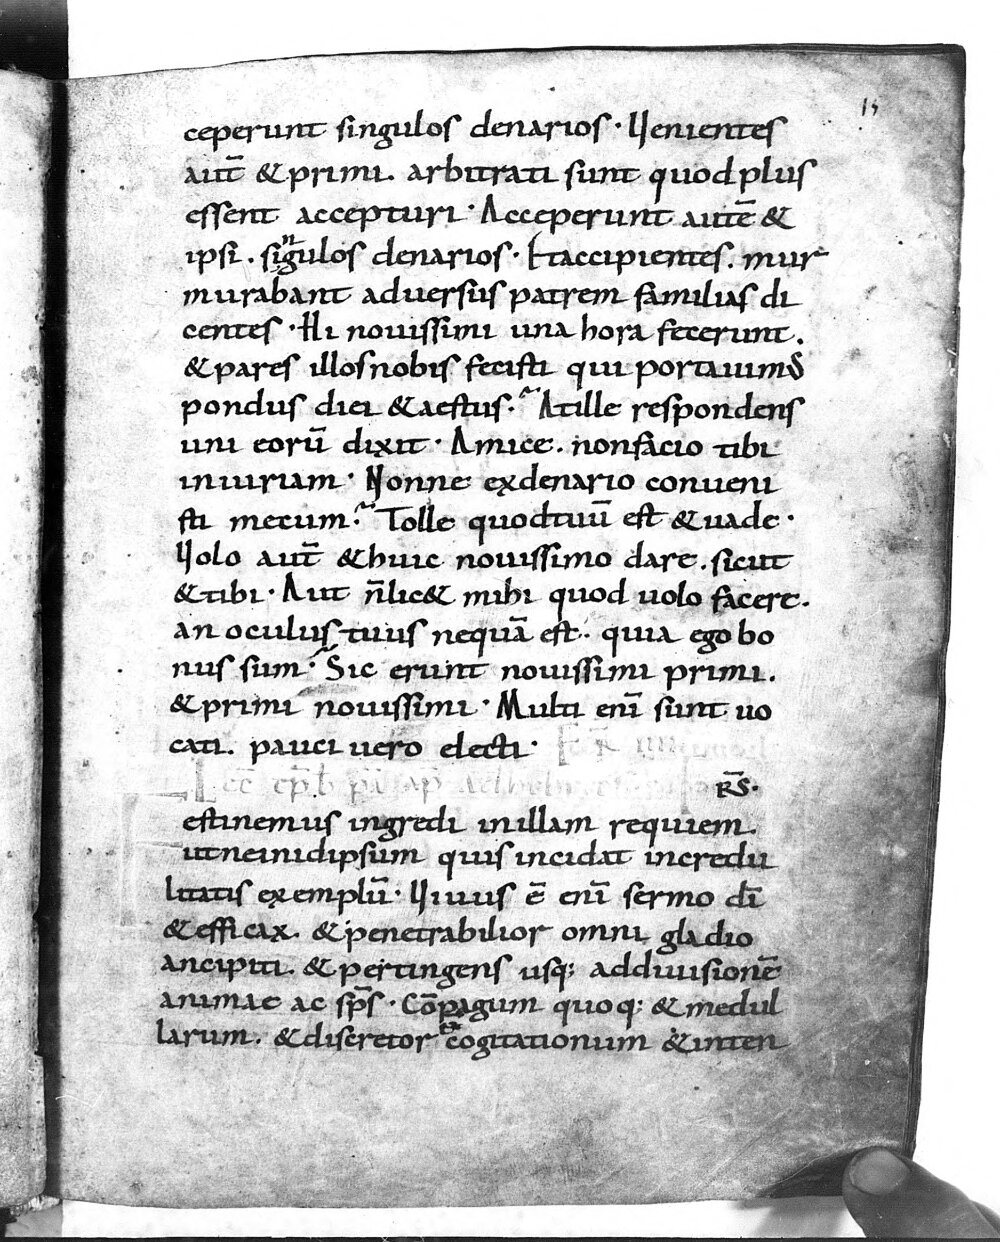 15
ceperunt singulos denarios · Uenientes
aut̄ & primi . arbitrati sunt quod plus
essent accepturi · Acceperunt autē &
ipsi . singulos denarios · Et accipientes . mur
murabant aduersus patrem familias di
centes · Hi nouissimi una hora fecerunt .
& pares illos nobis fecisti qui portauimus
pondus diei & aestus · At ille respondens
uni eorū dixit · Amice . non facio tibi
iniuriam · Nonne ex denario conueni
sti mecum · Tolle quod tuū est & uade ·
Uolo aut̄ & huic nouissimo dare . sicut
& tibi · Aut n̄ lic& mihi quod uolo facere .
an oculus tuus nequā est · quia ego bo
nus sum · Sic erunt nouissimi primi .
& primi nouissimi · Multi enī sunt uo
cati . pauci uero electi ·
R̄S ·
estinemus ingredi in illam requiem .
ut ne in id ipsum quis incidat incredu
litatis exemplū · Uiuus ē enī sermo dī
& efficax . & penetrabilior omni gladio
ancipiti . & pertingens usq; ad diuisionē
animae ac sp̄s · Cōpagum quoq; & medul
larum . & discretor cogitationum & inten